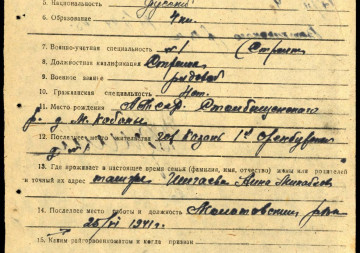 5. Национальность русский
6. Образование 4 кл.
7. Военно-учетная специальность №1 (Стрелк
8. Должностная квалификация Стрелок
9. Военное звание рядовой
10. Гражданская специальность Нет.
11. Место рождения АТССР.
р. д. М. Кабаны
12. Последнее место жительства гор Казань 1ая Оренбургск
13. Где проживает в настоящее время семья (фамилия, имя, отчество) жены или родителей
и точный их адрес Анна Михайл
14. Последнее место работы и должность Молотовский р-он
1941 г.
15. Каким райгорвоенкоматом и когда признан